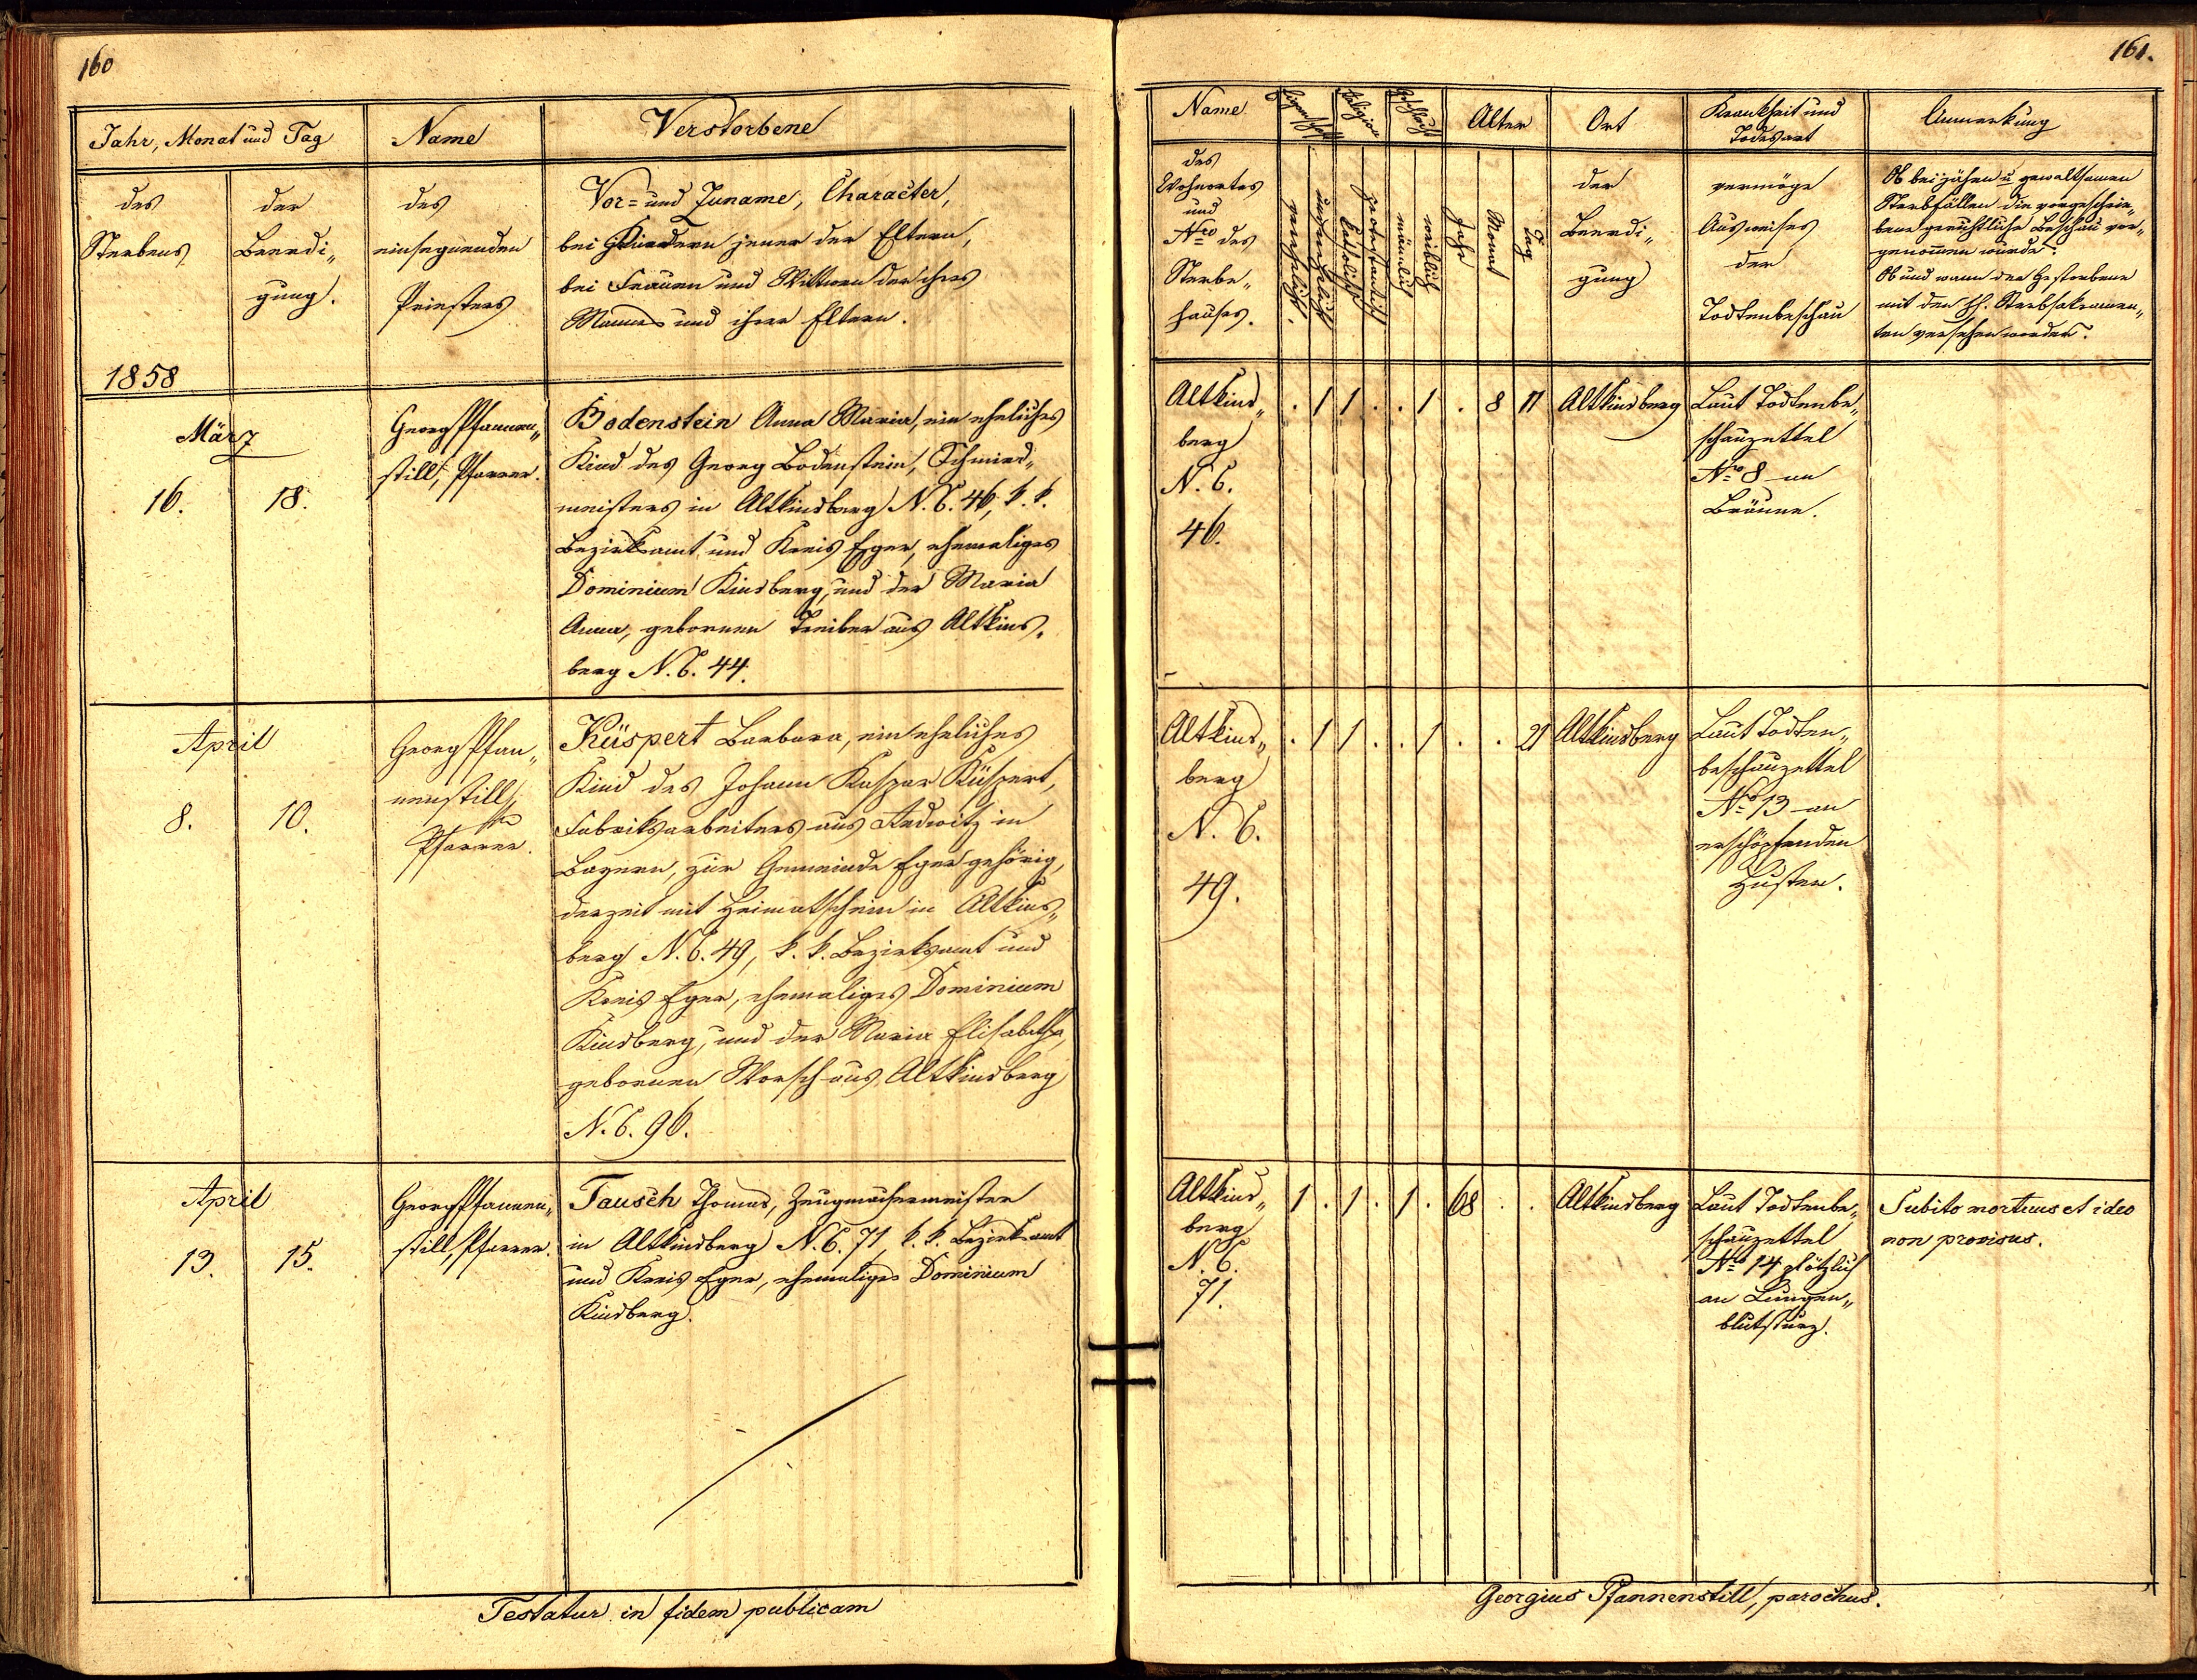 160
Jahr, Monat und Tag
Name
Verstorbene
des
Sterbens
der
Beerdi„
gung.
des
einsegnenden
Priesters
Vor- und Zuname, Character,
bei Kindern jener der Eltern,
bei Frauen und Wittwen der ihres
Mannes und ihrer Eltern.
1858
März
16.
18.
Georg Pfannen„
still, Pfarrer.
Bodenstein Anna Maria, ein eheliches
Kind des Georg Bodenstein, Schmied„
meisters in Altkinsberg N. C. 46, k. k.
Bezirksamt und Kreis Eger, ehemaliges
Dominium Kinsberg, und der Maria
Anna, gebornen Treiber aus Altkins„
berg N. C. 44.
April
8.
10.
Georg Pfan„
nenstill,
Pfarrer.
Küspert Barbara, ein eheliches
Kind des Johann Kaspar Küspert,
Fabriksarbeiters aus Redwitz in
Bayern, zur Gemeinde Eger gehörig,
derzeit mit Heimatschein in Altkins„
berg N. C. 49, k. k. Bezirksamt und
Kreis Eger, ehemaliges Dominium
Kinsberg, und der Maria Elisabetha,
gebornen Worsch aus Altkinsberg
N. C. 96.
April
13.
15.
Georg Pfannen„
still, Pfarrer.
Tausch Thomas, Zeugmachermeister
in Altkinsberg N. C. 71, k. k. Bezirksamt
und Kreis Eger, ehemaliges Dominium
Kinsberg.
Testatur in fidem publicam
161.
Name
Religion
Geschlecht
Alter
Ort
Krankheit und
Todesart
Anmerkung
des
Wohnortes
und
Nro des
Sterbe„
hauses.
verehelicht.
unverehelicht
katholisch
protestantisch
männlich
weiblich
Jahr
Monat
Tag
der
Beerdi„
gung
vermöge
Ausweises
der
Todtenbeschau
Ob bei jähen u gewaltsamen
Sterbfällen die vorgeschrie„
bene gerichtliche Beschau vor„
genommen wurde.
Ob und wann der Gestorbene
mit den hh. Sterbsakramen„
ten versehen worden.
Altkins„
berg
N. C.
46.
. 1 1 . . 1 . 8 11
Altkinsberg
Laut Todtenbe„
schauzettel
Nro 8 an
Bräune.
Altkins„
berg
N. C.
49.
. 1 1 . . 1 . . 21
Altkinsberg
Laut Todten„
beschauzettel
Nro 13 an
erschöpfenden
Husten.
Altkins„
berg
N. C.
71.
1 . 1 . 1 . 68 . .
Altkinsberg
Laut Todtenbe„
schauzettel
Nro 14 plötzlich
an Lungen„
blutsturz.
Subito mortuus et ideo
non provisus.
Georgius Pfannenstill, parochus.